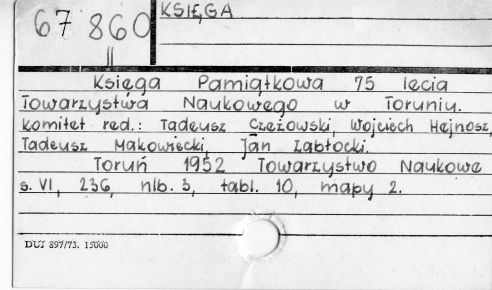 KSIĘGA
67 860
II
Księga Pamiątkowa 75 lecia
Towarzystwa Naukowego w Toruniu.
Komitet red.: Tadeusz Czeżowski, Wojciech Hejnosz,
Tadeusz Makowiecki, Jan Ząbłocki.
Toruń 1952 Towarzystwo Naukowe
s. VI, 236, nlb. 3, tabl. 10, mapy 2.
DUJ 897/73. 15000